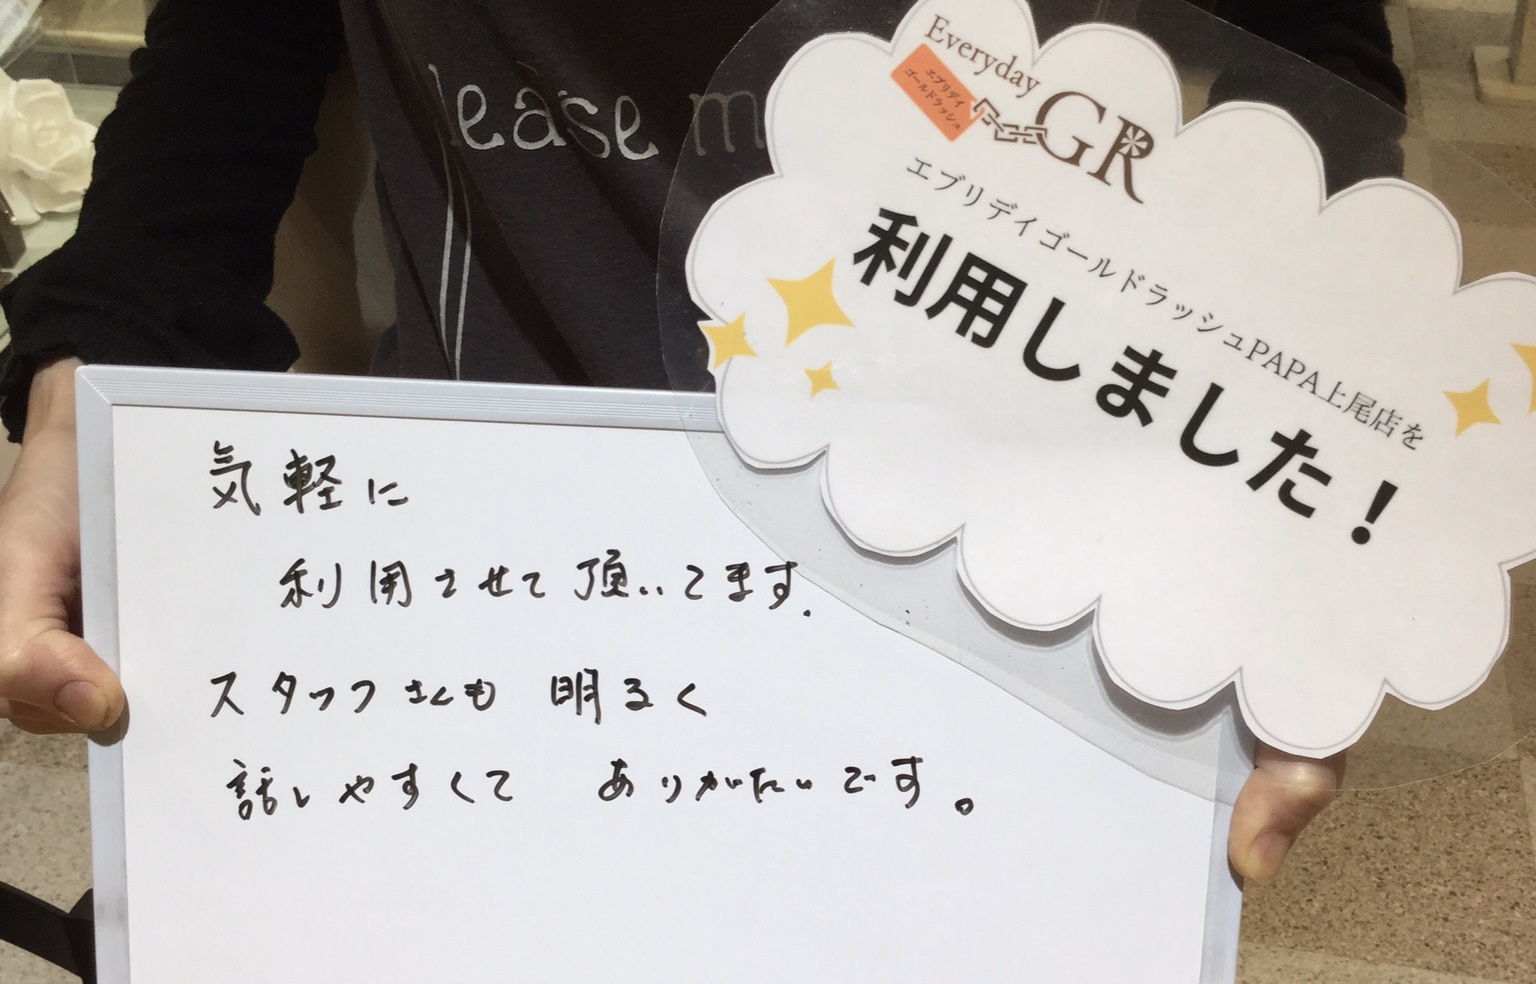 lease m
Everyday
エブリデイ
ゴールドラッシュ
GR
エブリデイゴールドラッシュPAPA上尾店を
利用しました！
気軽に
利用させて頂いてます.
スタッフさんも 明るく
話しやすくて ありがたいです。